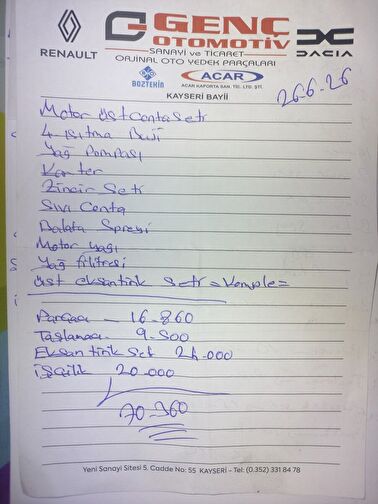 GENÇ
OTOMOTİV
SANAYİ ve TİCARET
ORJİNAL OTO YEDEK PARÇALARI
RENAULT
DACIA
BOZTEKİN
ACAR
ACAR KAPORTA SAN. TİC. LTD. ŞTİ.
KAYSERİ BAYİİ
26-6-26
Motor üst Conta Seti
4-ısıtma Buji
Yağ Pompası
Karter
Zincir Seti
Sıvı Conta
Balata Spreyi
Motor yağı
Yağ filitresi
üst eksantirik seti = komple =
Parçacı - 16-860
Taşlamacı - 9-500
Eksantirik Set 24-000
işçilik 20-000
70-360
Yeni Sanayi Sitesi 5. Cadde No: 55 KAYSERİ - Tel: (0.352) 331 84 78